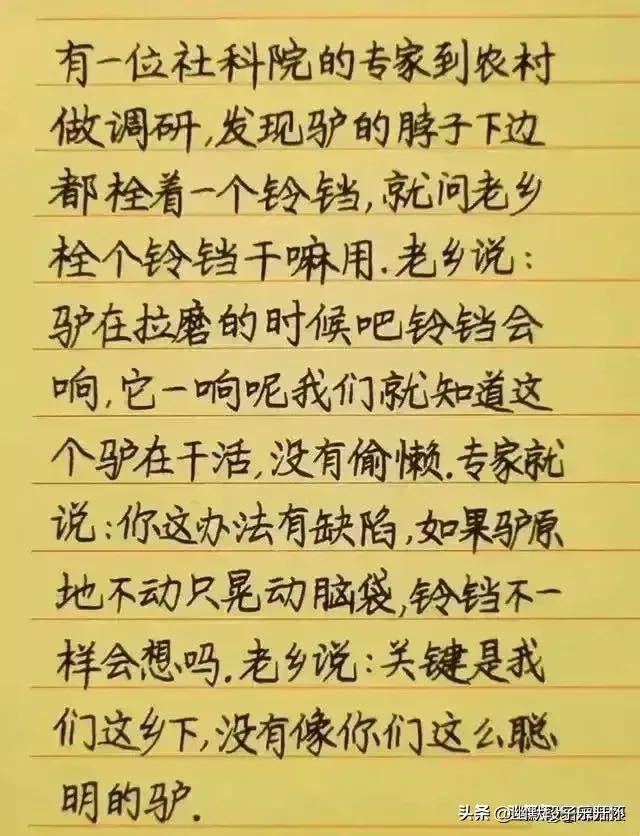 有一位社科院的专家到农村
做调研,发现驴的脖子下边
都栓着一个铃铛,就问老乡
栓个铃铛干嘛用.老乡说:
驴在拉磨的时候吧铃铛会
响,它一响呢我们就知道这
个驴在干活,没有偷懒.专家就
说:你这办法有缺陷,如果驴原
地不动只晃动脑袋,铃铛不一
样会想吗.老乡说:关键是我
们这乡下,没有像你们这么聪
明的驴.
头条 @幽默段子